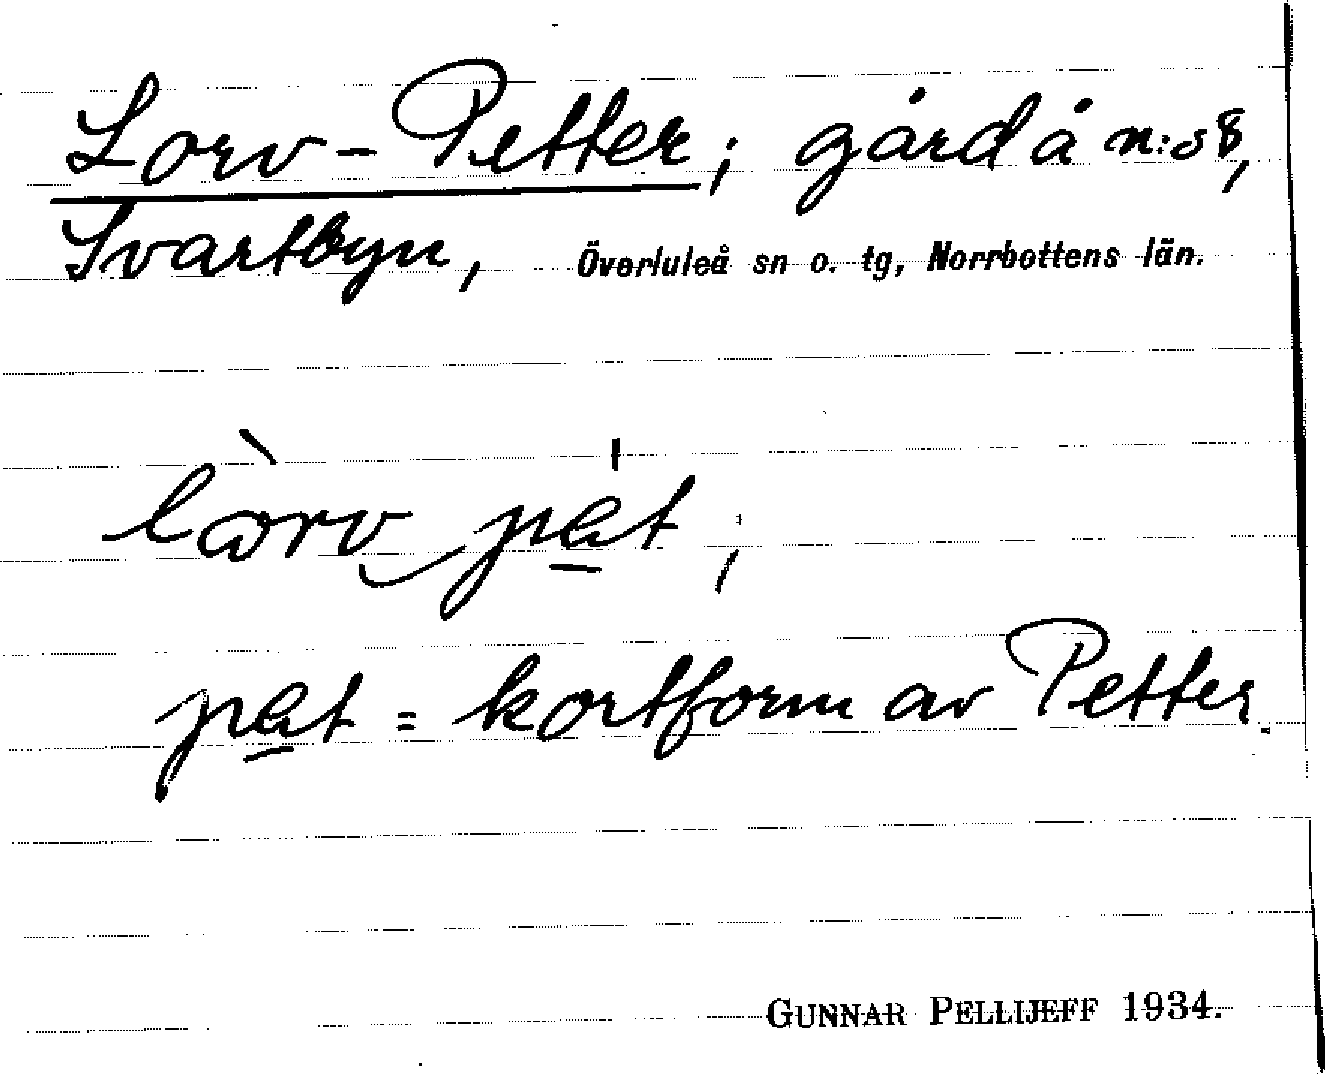 Lorv-Petter; gård å n:o 8,
Svartbyn, Överluleå sn o. tg, Norrbottens län.
lòrv pat;
pat = kortform av Petter.
GUNNAR PELLIJEFF 1934.